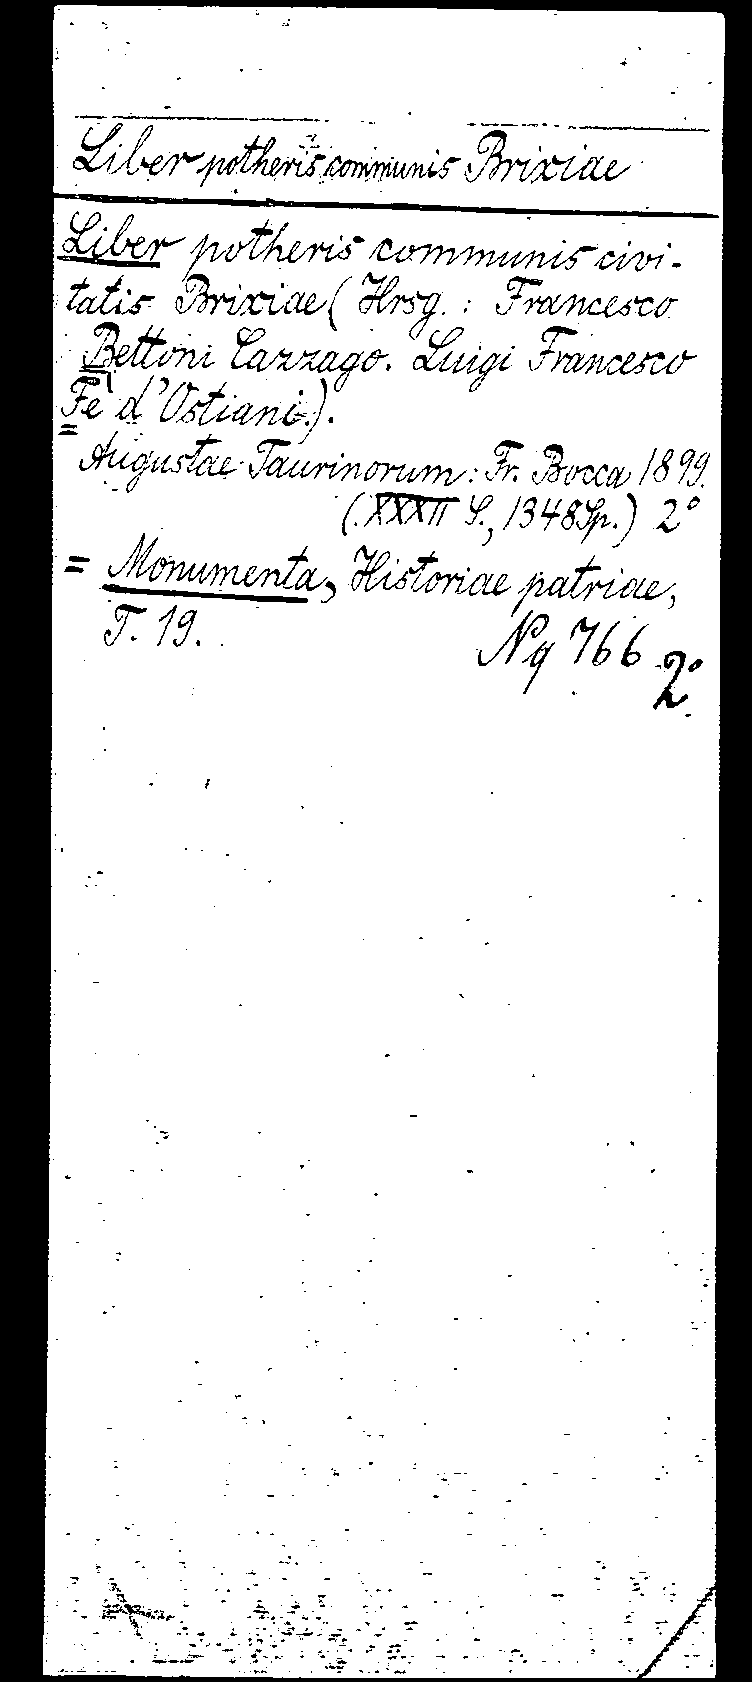 Liber potheris communis Brixiae
Liber potheris communis civi-
tatis Brixiae (Hrsg.: Francesco
Bettoni Cazzago. Luigi Francesco
Fè d'Ostiani.).
Augustae Taurinorum: Fr. Bocca 1899.
(XXXII S., 1348 Sp.) 2°
= Monumenta, Historiae patriae,
T. 19.
Nq 766 2°